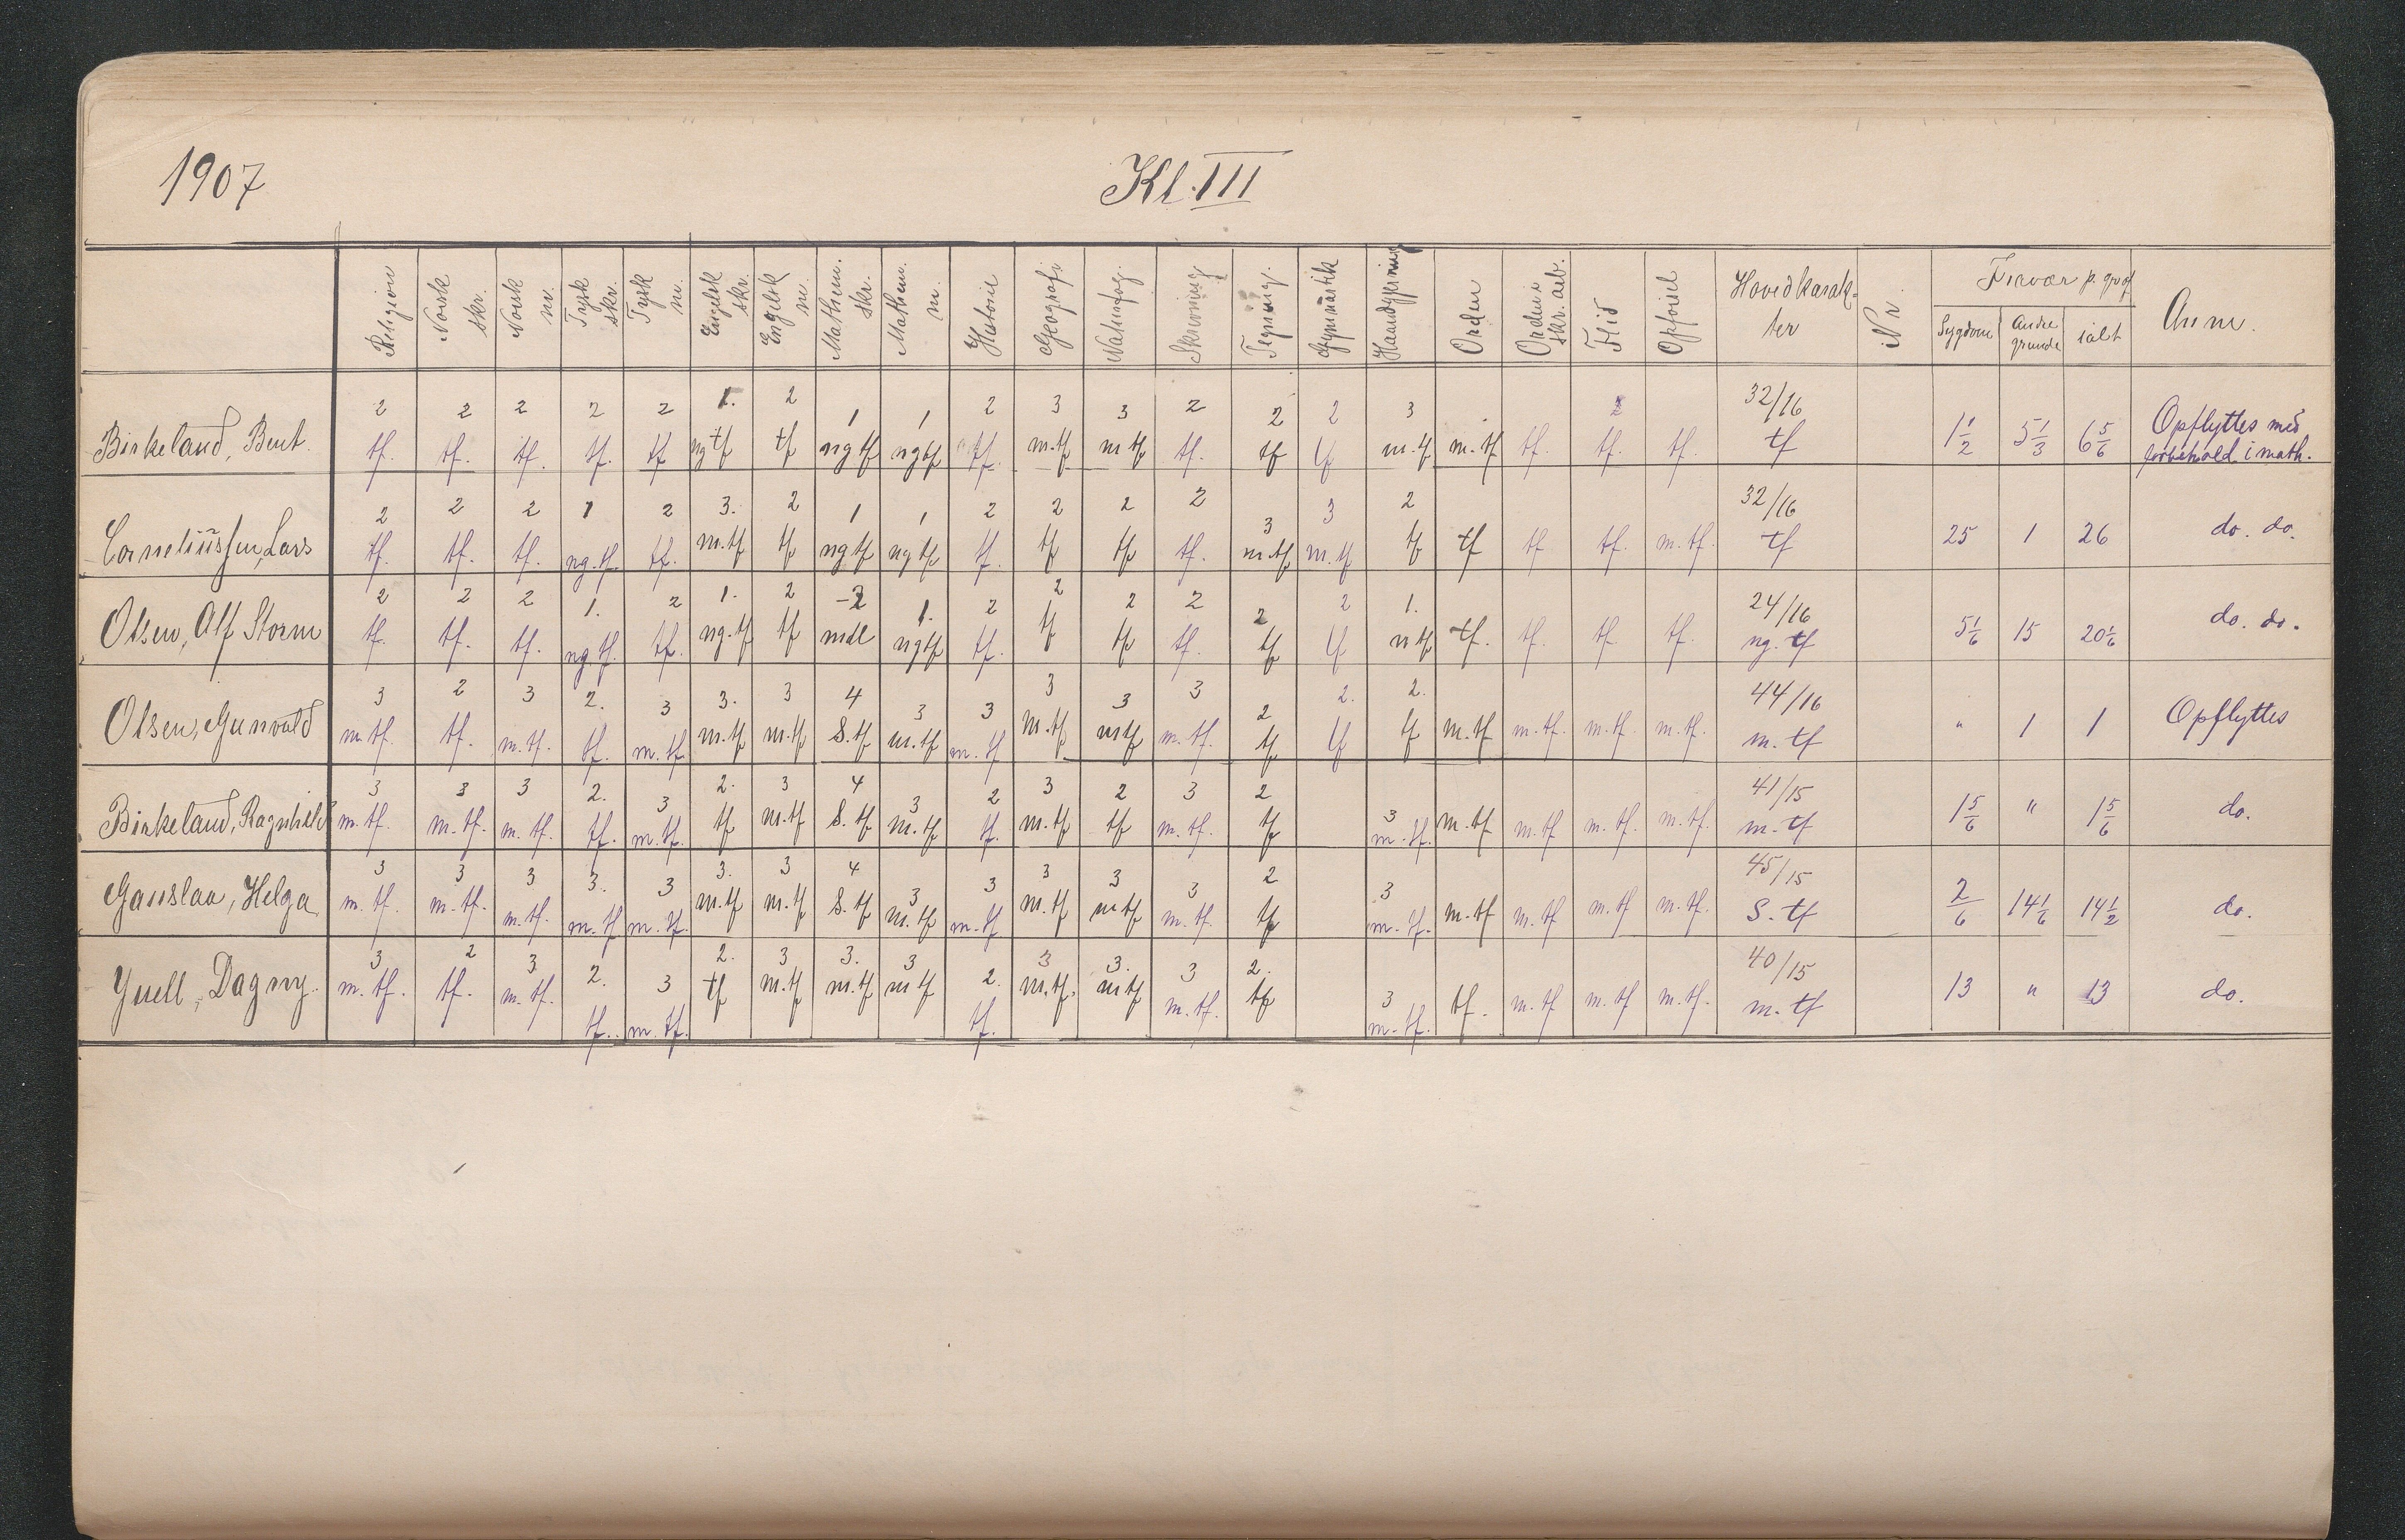 1907 Kl. III
Religion Norsk skr. Norsk m. Tysk skr. Tysk m. Engelsk skr. Engelsk m. Mathem. skr. Mathem. m. Historie Geografi Naturfag Skrivning Tegning. Gymnastik Haandgjerning Orden Orden i skr. arb. Flid Opførsel Hovedkarak- ter Nr. Fravær p. gr. af Anm.
Sygdom Andre grunde ialt
2 2 2 2 2 1. 2 1 1 2 3 3 2 2 2 3 2 32/16
Birkeland, Bent. tf. tf. tf. tf. tf ng tf tf ng tf ng tf tf. m. tf. m tf tf. tf tf m. tf m. tf tf. tf. tf. tf 1 1/2 5 1/3 6 5/6 Opflyttes med
forbehold i math.
2 2 2 1 2 3. 2 1 1 2 2 2 2 3 3 2 32/16
Corneliussen, Lars tf. tf. tf. ng. tf. tf. m. tf tf ng tf ng tf tf. tf tf tf. m. tf m. tf tf tf tf tf. m. tf. tf 25 1 26 do. do.
2 2 2 1. 2 1. 2 -2 1. 2 2 2 2 2 2 1. 24/16
Olsen, Alf Storm tf. tf. tf. ng. tf. tf. ng. tf tf mdl ng tf tf. tf tf tf. tf tf n tf tf. tf. tf tf. ng. tf 5 1/6 15 20 1/6 do. do.
3 2 3 2. 3 3. 3 4 3 3 3 3 3 2 2. 2. 44/16
Olsen, Gunvald m. tf. tf. m. tf. tf. m. tf. m. tf m. tf S. tf m. tf m. tf m. tf m tf m. tf. tf tf tf m. tf m. tf. m. tf. m. tf. m. tf " 1 1 Opflyttes
3 3 3 2. 3 2. 3 4 3 2 3 2 3 2 3 41/15
Birkeland, Ragnhild m. tf. m. tf. m. tf. tf. m. tf. tf m. tf S. tf m. tf tf. m. tf tf m. tf. tf m. tf. m. tf m. tf m. tf. m. tf. m. tf 1 5/6 " 1 5/6 do.
3 3 3 3. 3 3. 3 4 3 3 3 3 3 2 3 45/15
Gauslaa, Helga. m. tf. m. tf. m. tf. m. tf m. tf. m. tf m. tf S. tf m. tf m. tf m. tf m tf m. tf. tf m. tf. m. tf m. tf m. tf m. tf. S. tf 2/6 14 1/6 14 1/2 do.
3 2 3 2. 3 2. 3 3. 3 2. 3 3. 3 2. 3 40/15
Yuell, Dagny. m. tf. tf. m. tf. tf. m. tf. tf m. tf m. tf m tf tf. m. tf. m tf m. tf. tf m. tf. tf. m. tf m. tf m. tf. m. tf 13 " 13 do.